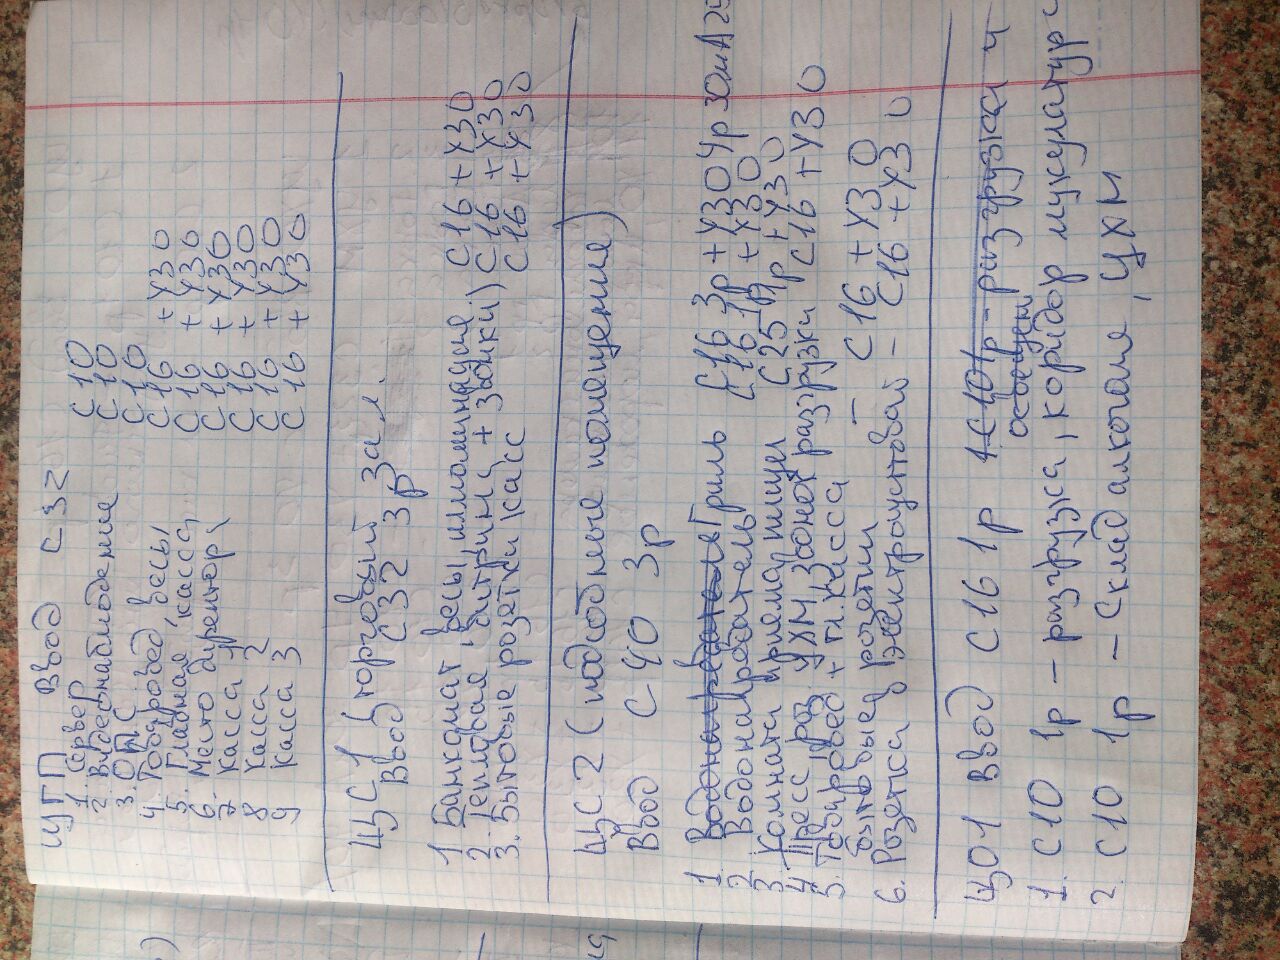 ЩГП Ввод С32
1. Сервер С10
2. Видеонаблюдение С10
3. ОПС С10
4. Товаровед, весы С16 + УЗО
5. Главная касса, С16 + УЗО
6. Место директора С16 + УЗО
7 Касса 1 С16 + УЗО
8 Касса 2 С16 + УЗО
9 Касса 3 С16 + УЗО
ЩС1 (торговый зал.
Ввод С32 3р
1 Банкомат, весы, иллюминация С16 + УЗО
2. Тепловая, витрины + звонки) С16 + УЗО
3. Бытовые розетки касс С16 + УЗО
ЩС2 (подсобные помещения)
Ввод С40 3р
1 Водонагреватель Гриль С16 3р + УЗО 4р 30мА 25
2 Водонагреватель С16 1р + УЗО
3 Комната приема пищи С25 1р + УЗО
4 Пресс роз УХМ, звонок разгрузки С16 + УЗО
5. Товаровед + гл.касса
бытовые розетки С16 + УЗО
6. Розетка электрощитовой - С16 + УЗО
ЩО1 Ввод С16 1р 1С10 1р - разгрузка и
освещен
1. С10 1р – разгрузка, коридор
2. С10 1р – Склад алкоголя, УХМ